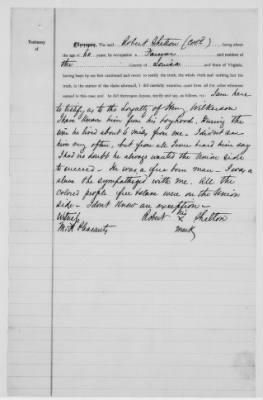 Testimony
of
Thereupon, The said Robert Shelton (Cold) being about
the age of 60 years, by occupation a Farmer and resident of
the County of Louisa and State of Virginia,
having been by me first cautioned and sworn to testify the truth, the whole truth and nothing but the
truth, in the matter of the claim aforesaid, I did carefully examine, apart from all the other witnesses
named in this case; and he did thereupon depose, testify and say, as follows: I am here
to testify as to the Loyalty of Henry Wilkerson
I have known him from his boyhood. During the
war he lived about 6 miles from me. I did not see
him very often, but from all I ever heard him say
I had no doubt he always wanted the Union side
to succeed. He was a free born man. I was a
slave he sympathised with me. All the
colored people free & slave were on the Union
side. I dont know an exception.
Witness Robert his x Shelton
mark